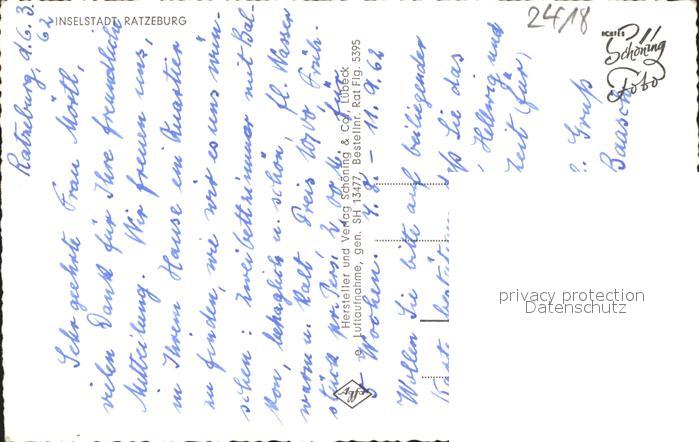 INSELSTADT RATZEBURG
24/18
ECHTES
Schöning
Foto
Ratzeburg, d. 6. 3.
62
Sehr geehrte Frau Mörtl,
vielen Dank für Ihre freundliche
Mitteilung. Wir freuen uns,
in Ihrem Hause ein Quartier
zu finden, wie wir es uns wün-
schen: Zweibettzimmer mit Bal-
kon, behaglich u. schön, fl. Wasser
warm u. kalt Preis Früh-
stück pro Pers. für
3 Wochen. – 11. 9. 62
Wollen Sie bitte auf beiliegender
Karte bestät
ß Sie das
Hellwig und
Zeit für,
Gruß
Baasch
Hersteller und Verlag Schöning & Co., Lübeck
Luftaufnahme, gen. SH 13477, Bestellnr. Rat Flg. 5395
Agfa
privacy protection
Datenschutz